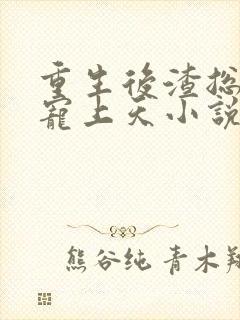 重生後渣总
寵上天小說
熊谷纯 青木翔